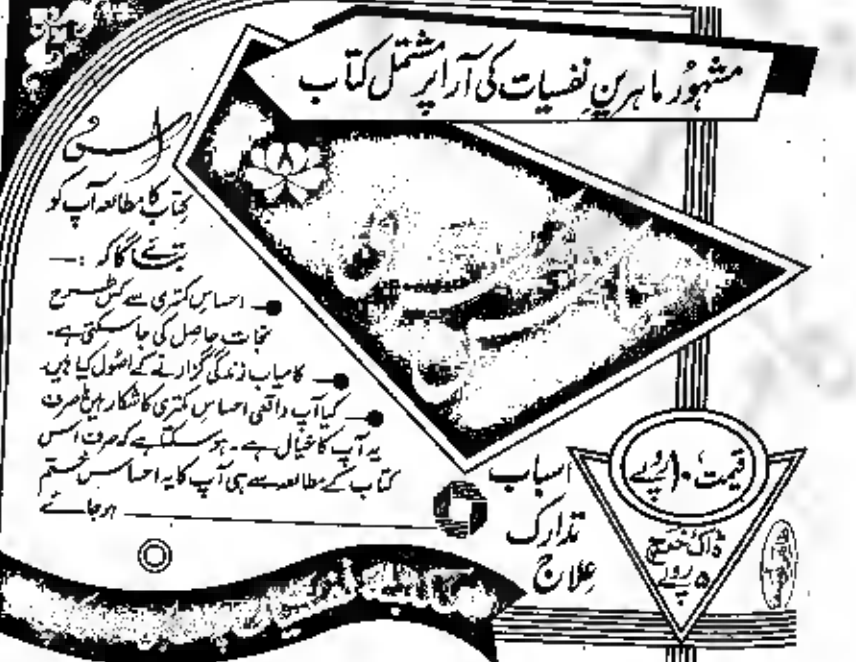 مشہور ماہرینِ نفسیات کی آرا پر مشتمل کتاب
اس
کتاب کا مطالعہ آپ کو
بتائے گا کہ :—
احساسِ کمتری سے کس طرح
نجات حاصل کی جاسکتی ہے۔
کامیاب زندگی گزارنے کے اصول کیا ہیں۔
کیا آپ واقعی احساسِ کمتری کا شکار ہیں یا صرف
یہ آپ کا خیال ہے۔ ہوسکتا ہے کہ صرف اس
کتاب کے مطالعہ سے ہی آپ کا یہ احساس ختم
ہوجائے
اسباب
تدارک
علاج
قیمت ۱۰ روپے
ڈاک خرچ
۵ روپے